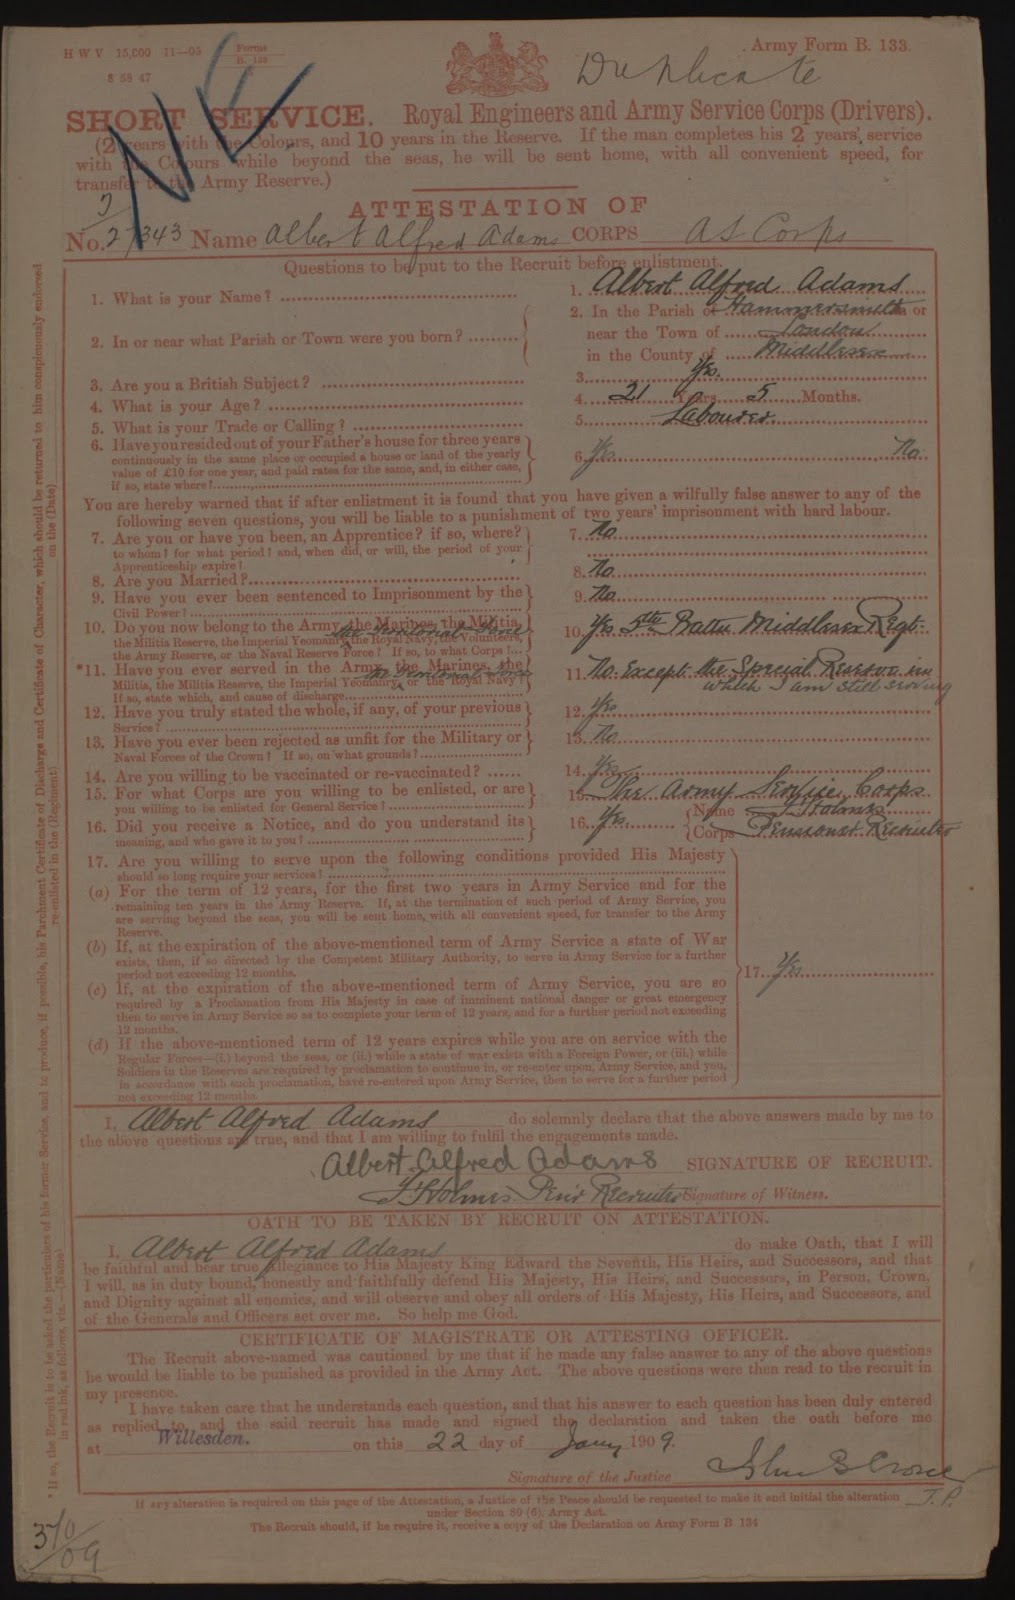 H W V 15,000 11—05 Forms B. 133
8 58 47
Army Form B. 133.
Duplicate
NE
SHORT SERVICE. Royal Engineers and Army Service Corps (Drivers).
(2 years with the Colours, and 10 years in the Reserve. If the man completes his 2 years' service
with the Colours while beyond the seas, he will be sent home, with all convenient speed, for
transfer to the Army Reserve.)
ATTESTATION OF
No. 2/343 Name Albert Alfred Adams CORPS A S Corps
Questions to be put to the Recruit before enlistment.
1. What is your Name? 1. Albert Alfred Adams
2. In or near what Parish or Town were you born? 2. In the Parish of Hammersmith or
near the Town of London
in the County of Middlesex
3. Are you a British Subject? 3. Yes.
4. What is your Age? 4. 21 Years 5 Months.
5. What is your Trade or Calling? 5. Labourer.
6. Have you resided out of your Father's house for three years
continuously in the same place or occupied a house or land of the yearly
value of £10 for one year, and paid rates for the same, and, in either case,
if so, state where? 6. Yes No
You are hereby warned that if after enlistment it is found that you have given a wilfully false answer to any of the
following seven questions, you will be liable to a punishment of two years' imprisonment with hard labour.
7. Are you or have you been, an Apprentice? if so, where?
to whom? for what period? and, when did, or will, the period of your
Apprenticeship expire? 7. No
8. Are you Married? 8. No
9. Have you ever been sentenced to Imprisonment by the
Civil Power? 9. No
10. Do you now belong to the Army, the Marines, the Militia,
the Militia Reserve, the Imperial Yeomanry, the Territorial Force the Royal Navy, the Volunteers,
the Army Reserve, or the Naval Reserve Force? If so, to what Corps? 10. Yes 5th Battn Middlesex Regt.
*11. Have you ever served in the Army, the Marines, the
Militia, the Militia Reserve, the Imperial Yeomanry, the Territorial Force or the Royal Navy?
If so, state which, and cause of discharge 11. No. Except the Special Reserve in
which I am still serving
12. Have you truly stated the whole, if any, of your previous
Service? 12. Yes
13. Have you ever been rejected as unfit for the Military or
Naval Forces of the Crown? If so, on what grounds? 13. No
14. Are you willing to be vaccinated or re-vaccinated? 14. Yes
15. For what Corps are you willing to be enlisted, or are
you willing to be enlisted for General Service? 15. The Army Service Corps
16. Did you receive a Notice, and do you understand its
meaning, and who gave it to you? 16. Yes. Name Holmes
Corps Pensioner Recruiter
17. Are you willing to serve upon the following conditions provided His Majesty
should so long require your services?
(a) For the term of 12 years, for the first two years in Army Service and for the
remaining ten years in the Army Reserve. If, at the termination of such period of Army Service, you
are serving beyond the seas, you will be sent home, with all convenient speed, for transfer to the Army
Reserve.
(b) If, at the expiration of the above-mentioned term of Army Service a state of War
exists, then, if so directed by the Competent Military Authority, to serve in Army Service for a further
period not exceeding 12 months.
17. Yes
(c) If, at the expiration of the above-mentioned term of Army Service, you are so
required by a Proclamation from His Majesty in case of imminent national danger or great emergency
then to serve in Army Service so as to complete your term of 12 years, and for a further period not exceeding
12 months.
(d) If the above-mentioned term of 12 years expires while you are on service with the
Regular Forces—(i.) beyond the seas, or (ii.) while a state of war exists with a Foreign Power, or (iii.) while
Soldiers in the Reserves are required by proclamation to continue in, or re-enter upon, Army Service, and you,
in accordance with such proclamation, have re-entered upon Army Service, then to serve for a further period
not exceeding 12 months.
I, Albert Alfred Adams do solemnly declare that the above answers made by me to
the above questions are true, and that I am willing to fulfil the engagements made.
Albert Alfred Adams SIGNATURE OF RECRUIT.
Holmes Penr Recruiter Signature of Witness.
OATH TO BE TAKEN BY RECRUIT ON ATTESTATION.
I, Albert Alfred Adams do make Oath, that I will
be faithful and bear true Allegiance to His Majesty King Edward the Seventh, His Heirs, and Successors, and that
I will, as in duty bound, honestly and faithfully defend His Majesty, His Heirs, and Successors, in Person, Crown,
and Dignity against all enemies, and will observe and obey all orders of His Majesty, His Heirs, and Successors, and
of the Generals and Officers set over me. So help me God.
CERTIFICATE OF MAGISTRATE OR ATTESTING OFFICER.
The Recruit above-named was cautioned by me that if he made any false answer to any of the above questions
he would be liable to be punished as provided in the Army Act. The above questions were then read to the recruit in
my presence.
I have taken care that he understands each question, and that his answer to each question has been duly entered
as replied to, and the said recruit has made and signed the declaration and taken the oath before me
at Willesden. on this 22 day of Jany 1909.
Signature of the Justice J.P.
If any alteration is required on this page of the Attestation, a Justice of the Peace should be requested to make it and initial the alteration
under Section 80 (6), Army Act.
The Recruit should, if he require it, receive a copy of the Declaration on Army Form B 134
370/09
* If so, the Recruit is to be asked the particulars of his former Service, and to produce, if possible, his Parchment Certificate of Discharge and Certificate of Character, which should be returned to him conspicuously endorsed
in red ink, as follows, viz.—(Name) re-enlisted in the (Regiment) on the (Date)